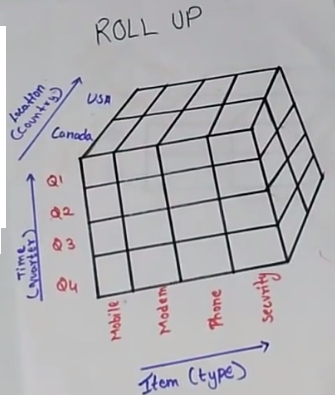 ROLL UP
Location
(Country)
USA
Canada
Time
(quarter)
Q1
Q2
Q3
Q4
Mobile
Modem
Phone
Security
Item (type)